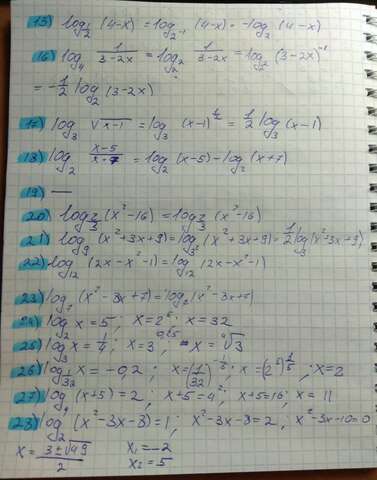 15) log_{1/2} (4-x) = log_{2^{-1}} (4-x) = -log_2 (4-x)
16) log_4 1/(3-2x) = log_{2^2} 1/(3-2x) = log_{2^2} (3-2x)^{-1}
= -1/2 log_2 (3-2x)
17) log_3 √(x-1) = log_3 (x-1)^{1/2} = 1/2 log_3 (x-1)
18) log_2 (x-5)/(x+7) = log_2 (x-5) - log_2 (x+7)
19) —
20) log_{2/3} (x²-16) = log_{2/3} (x²-16)
21) log_9 (x²+3x+9) = log_{3²} (x²+3x+9) = 1/2 log_3 (x²+3x+9)
22) log_{12} (2x-x²-1) = log_{12} (2x-x²-1)
23) log_7 (x²-8x+7) = log_7 (x²-8x+7)
24) log_2 x = 5; x = 2^5; x = 32
25) log_3 x = 1/4; x = 3^{0,25}; x = ⁴√3
26) log_{1/32} x = -0,2; x = (1/32)^{-1/5}; x = (2^5)^{1/5}; x = 2
27) log_4 (x+5) = 2; x+5 = 4²; x+5 = 16; x = 11
28) log_2 (x²-3x-8) = 1; x²-3x-8 = 2; x²-3x-10 = 0
x = (3±√49)/2 x₁ = -2
x₂ = 5